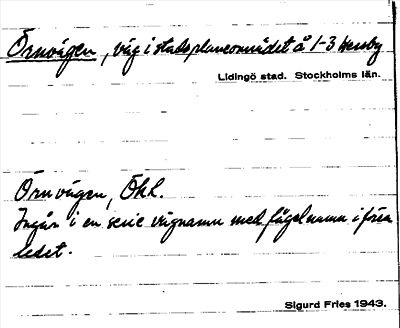 Örnvägen, väg i stadsplaneområdet å 1-3 Hersby
Lidingö stad. Stockholms län.
Örnvägen, Öhl.
Ingår i en serie vägnamn med fågelnamn i förra
ledet.
Sigurd Fries 1943.